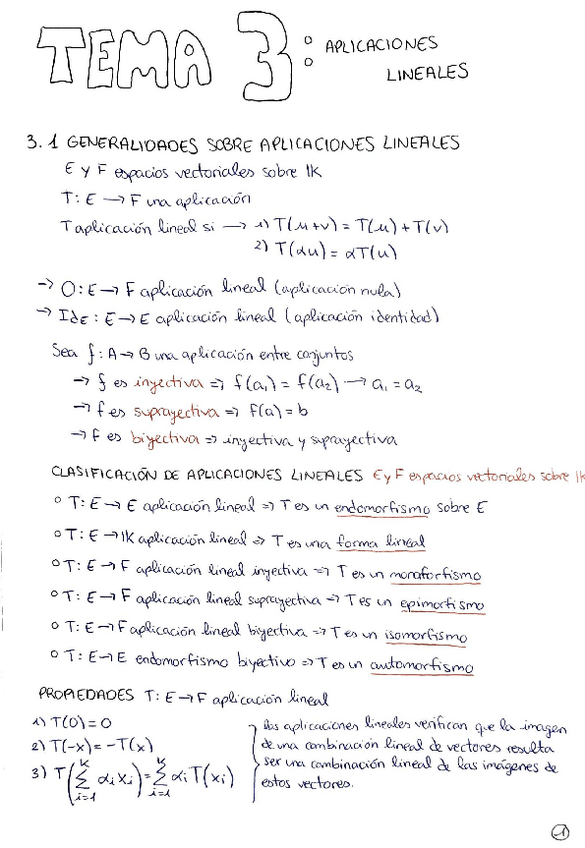 TEMA 3: APLICACIONES
LINEALES
3.1 GENERALIDADES SOBRE APLICACIONES LINEALES
E y F espacios vectoriales sobre IK
T: E → F una aplicación
T aplicación lineal si → 1) T(u+v) = T(u) + T(v)
2) T(αu) = αT(u)
→ O: E → F aplicación lineal (aplicación nula)
→ Id_E: E → E aplicación lineal (aplicación identidad)
Sea f: A → B una aplicación entre conjuntos
→ f es inyectiva => f(a₁) = f(a₂) → a₁ = a₂
→ f es suprayectiva => f(a) = b
→ f es biyectiva => inyectiva y suprayectiva
CLASIFICACIÓN DE APLICACIONES LINEALES E y F espacios vectoriales sobre IK
o T: E → E aplicación lineal => T es un endomorfismo sobre E
o T: E → IK aplicación lineal => T es una forma lineal
o T: E → F aplicación lineal inyectiva => T es un monoforfismo
o T: E → F aplicación lineal suprayectiva => T es un epimorfismo
o T: E → F aplicación lineal biyectiva => T es un isomorfismo
o T: E → E endomorfismo biyectivo => T es un automorfismo
PROPIEDADES T: E → F aplicación lineal
1) T(0) = 0
2) T(-x) = -T(x)
3) T(∑_{i=1}^{K} αᵢxᵢ) = ∑_{i=1}^{K} αᵢT(xᵢ)
las aplicaciones lineales verifican que la imagen
de una combinación lineal de vectores resulta
ser una combinación lineal de las imágenes de
estos vectores.
1